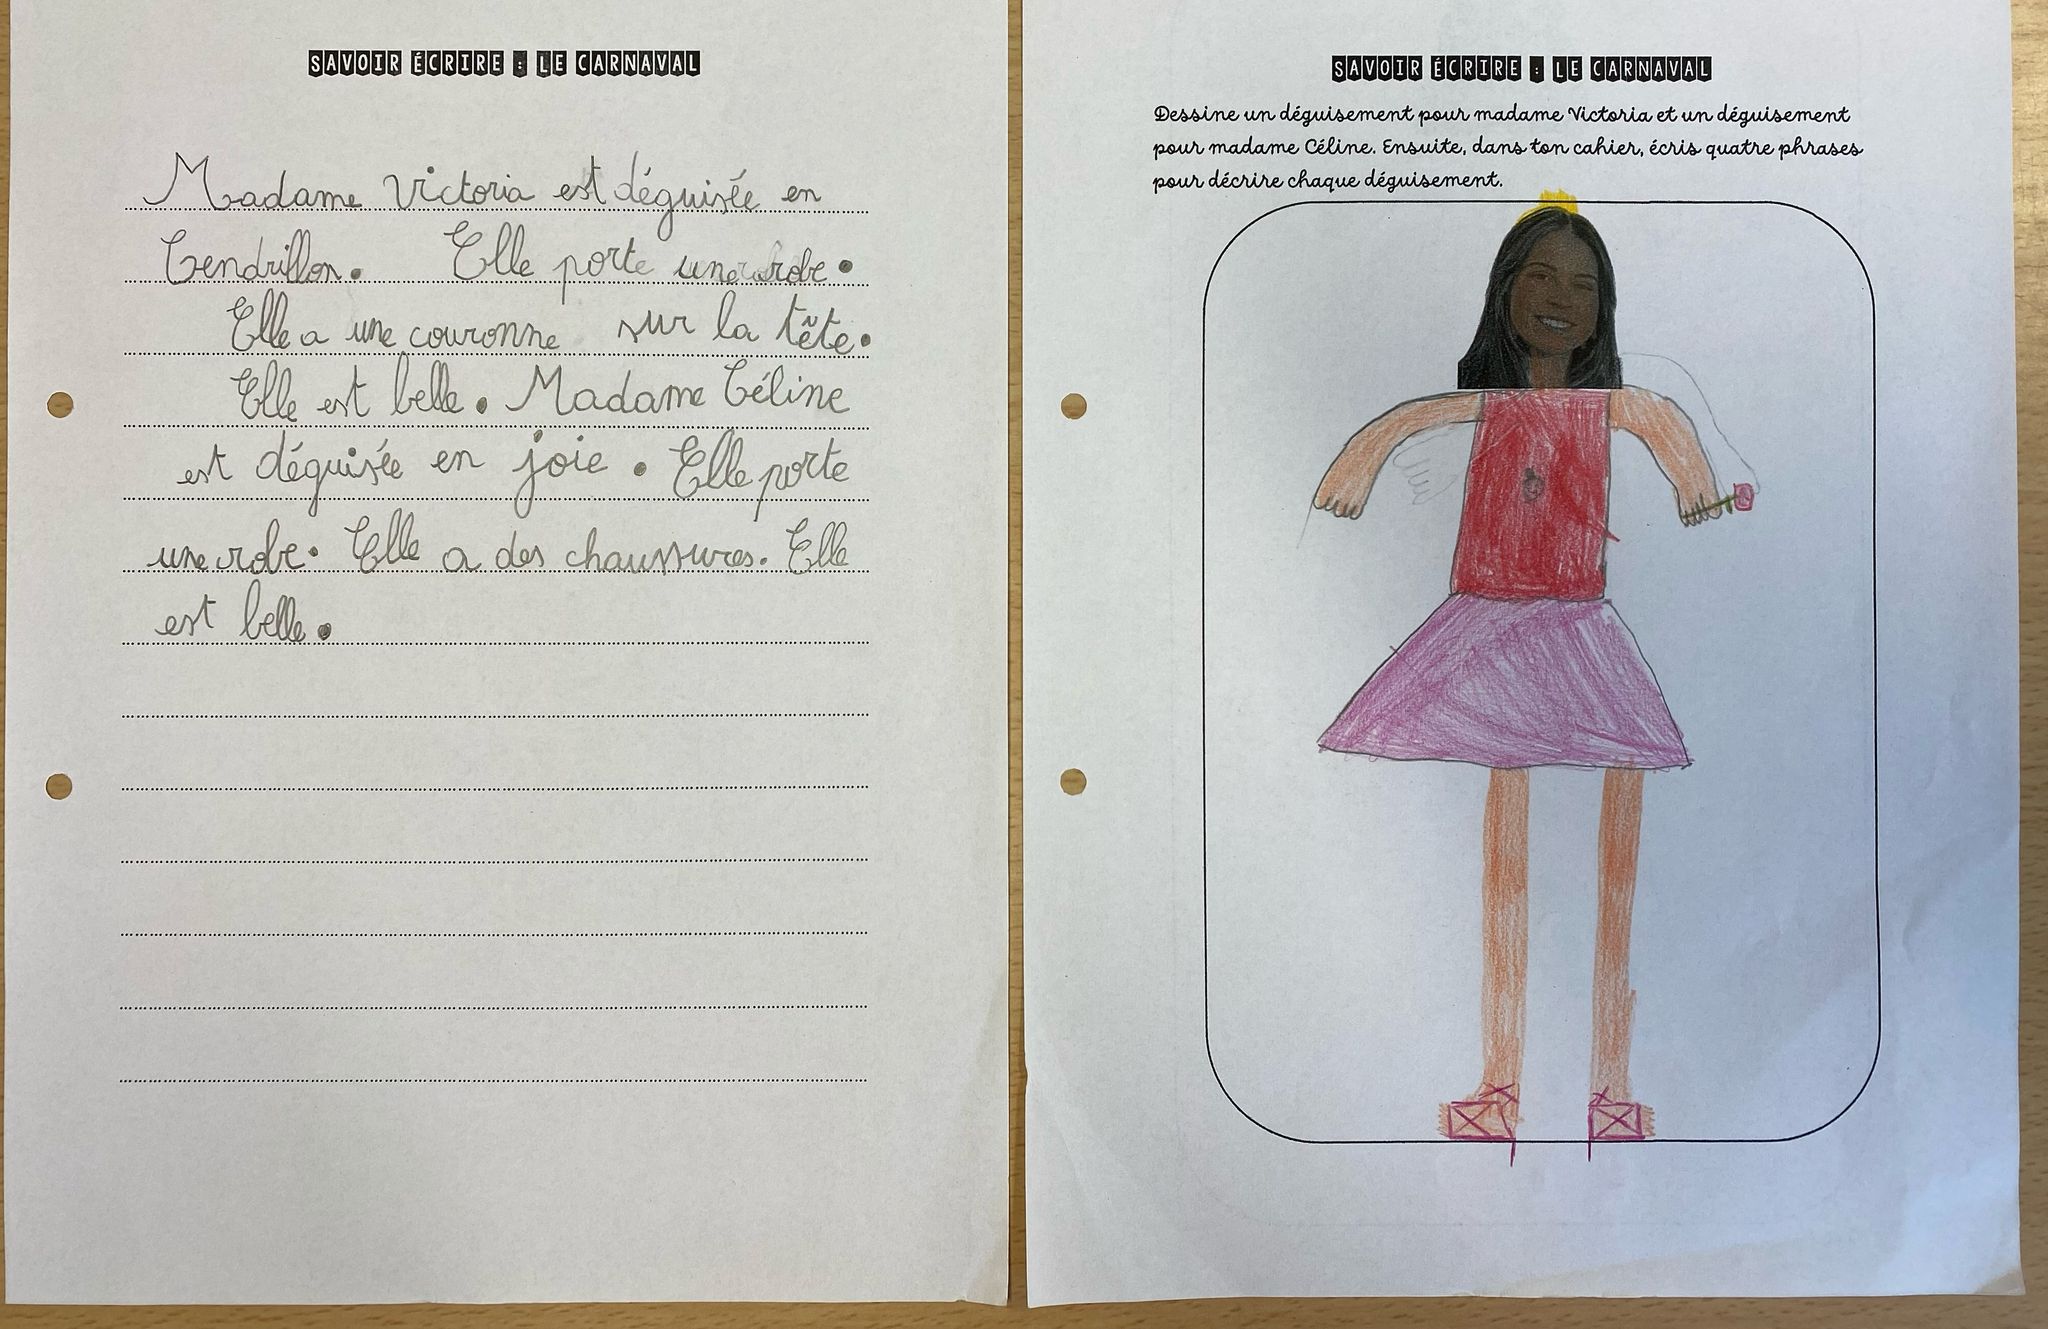 SAVOIR ÉCRIRE : LE CARNAVAL
Madame Victoria est déguisée en
Cendrillon. Elle porte une robe.
Elle a une couronne sur la tête.
Elle est belle. Madame Céline
est déguisée en joie. Elle porte
une robe. Elle a des chaussures. Elle
est belle.
SAVOIR ÉCRIRE : LE CARNAVAL
Dessine un déguisement pour madame Victoria et un déguisement
pour madame Céline. Ensuite, dans ton cahier, écris quatre phrases
pour décrire chaque déguisement.